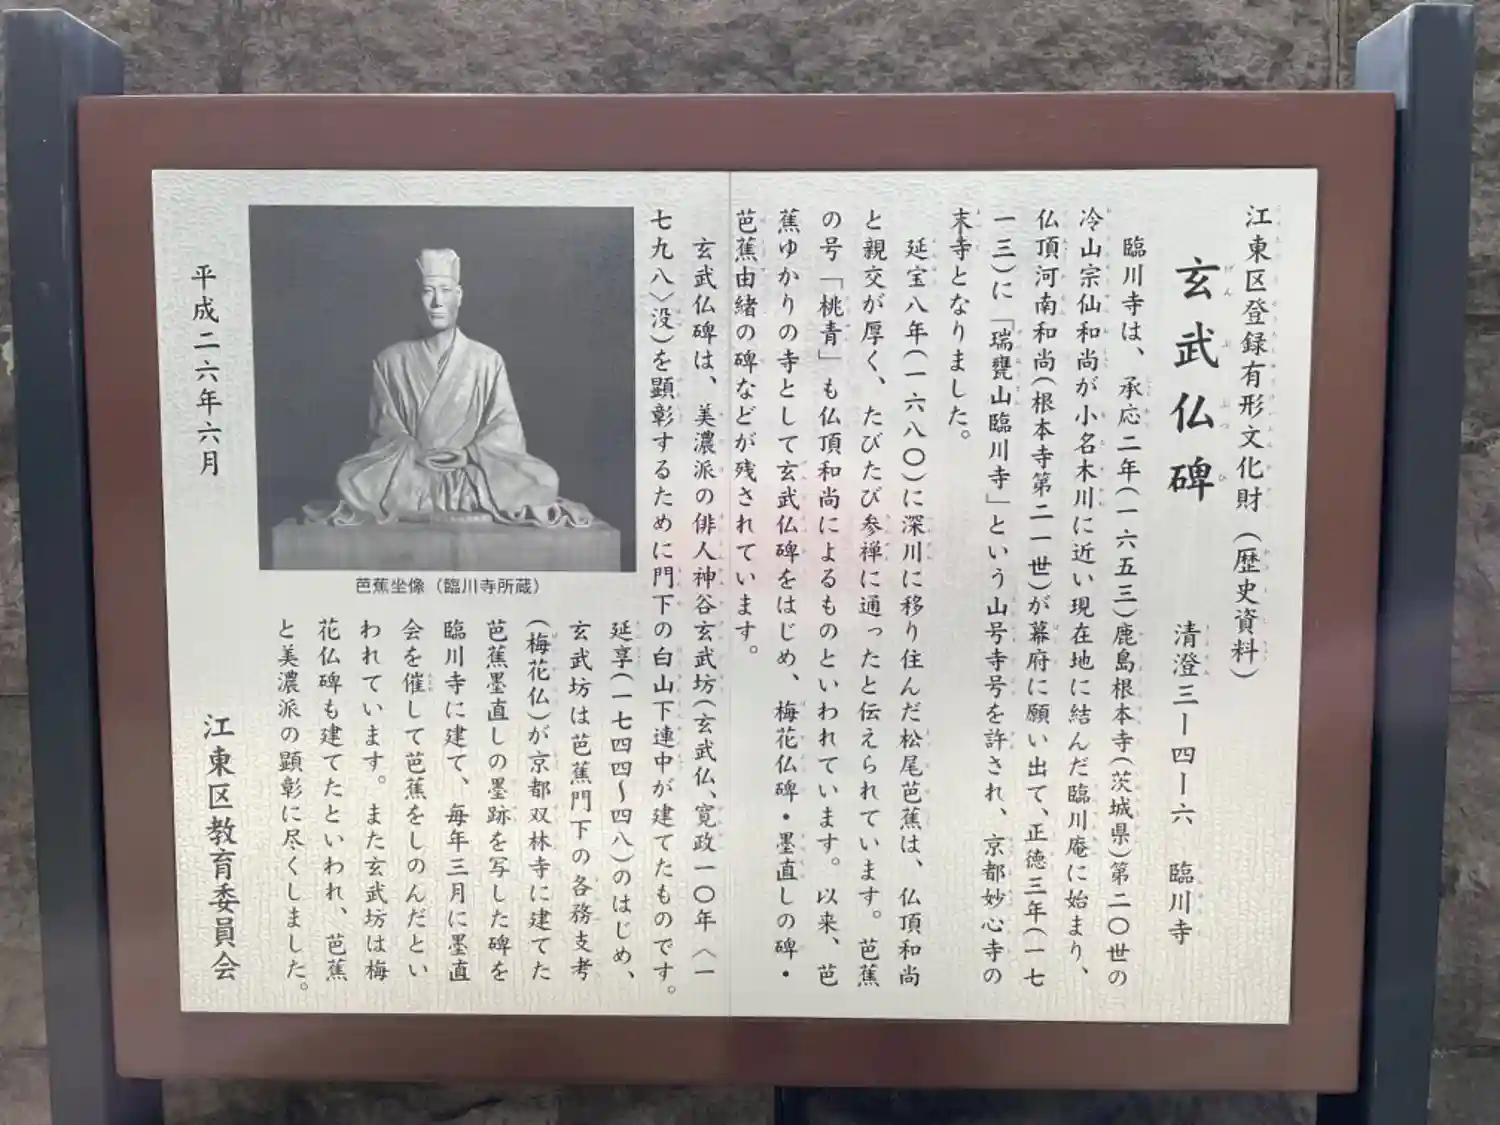 江東区登録有形文化財(歴史資料)
玄武仏碑
清澄三ー四ー六 臨川寺
臨川寺は、承応二年(一六五三)鹿島根本寺(茨城県)第二〇世の
冷山宗仙和尚が小名木川に近い現在地に結んだ臨川庵に始まり、
仏頂河南和尚(根本寺第二一世)が幕府に願い出て、正徳三年(一七
一三)に「瑞甕山臨川寺」という山号寺号を許され、京都妙心寺の
末寺となりました。
延宝八年(一六八〇)に深川に移り住んだ松尾芭蕉は、仏頂和尚
と親交が厚く、たびたび参禅に通ったと伝えられています。芭蕉
の号「桃青」も仏頂和尚によるものといわれています。以来、芭
蕉ゆかりの寺として玄武仏碑をはじめ、梅花仏碑・墨直しの碑・
芭蕉由緒の碑などが残されています。
玄武仏碑は、美濃派の俳人神谷玄武坊(玄武仏、寛政一〇年〈一
七九八〉没)を顕彰するために門下の白山下連中が建てたものです。
延享(一七四四〜四八)のはじめ、
玄武坊は芭蕉門下の各務支考
(梅花仏)が京都双林寺に建てた
芭蕉墨直しの墨跡を写した碑を
臨川寺に建て、毎年三月に墨直
会を催して芭蕉をしのんだとい
われています。また玄武坊は梅
花仏碑も建てたといわれ、芭蕉
と美濃派の顕彰に尽くしました。
芭蕉坐像(臨川寺所蔵)
平成二六年六月
江東区教育委員会